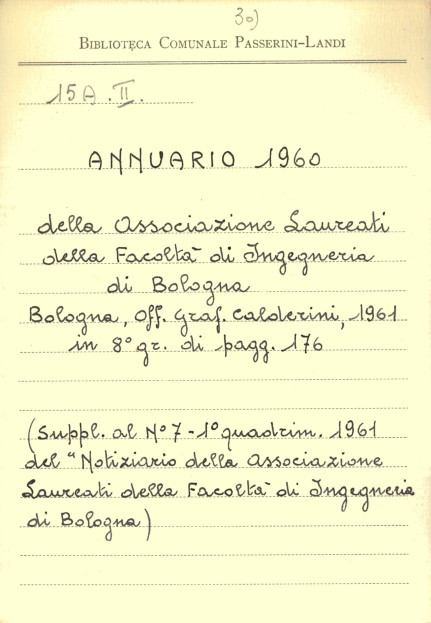 30)
BIBLIOTECA COMUNALE PASSERINI-LANDI
15A.II.
ANNUARIO 1960
della Associazione Laureati
della Facoltà di Ingegneria
di Bologna
Bologna, Off. Graf. Calderini, 1961
in 8° gr. di pagg. 176
(Suppl. al N° 7 - 1° quadrim. 1961
del "Notiziario della Associazione
Laureati della Facoltà di Ingegneria
di Bologna)